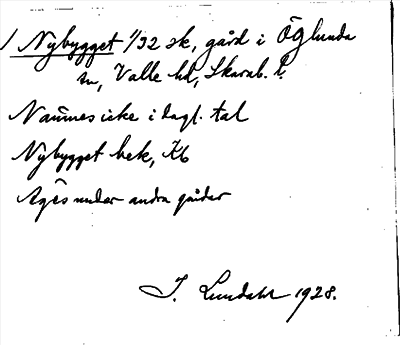 / Nybygget 1/32 sk, gård i Öglunda
sn, Valle hd, Skarab. l.
Namnes icke i dagl. tal
Nybygget bek, Kb
Ägês under andra gårdar
I. Lundahl 1928.